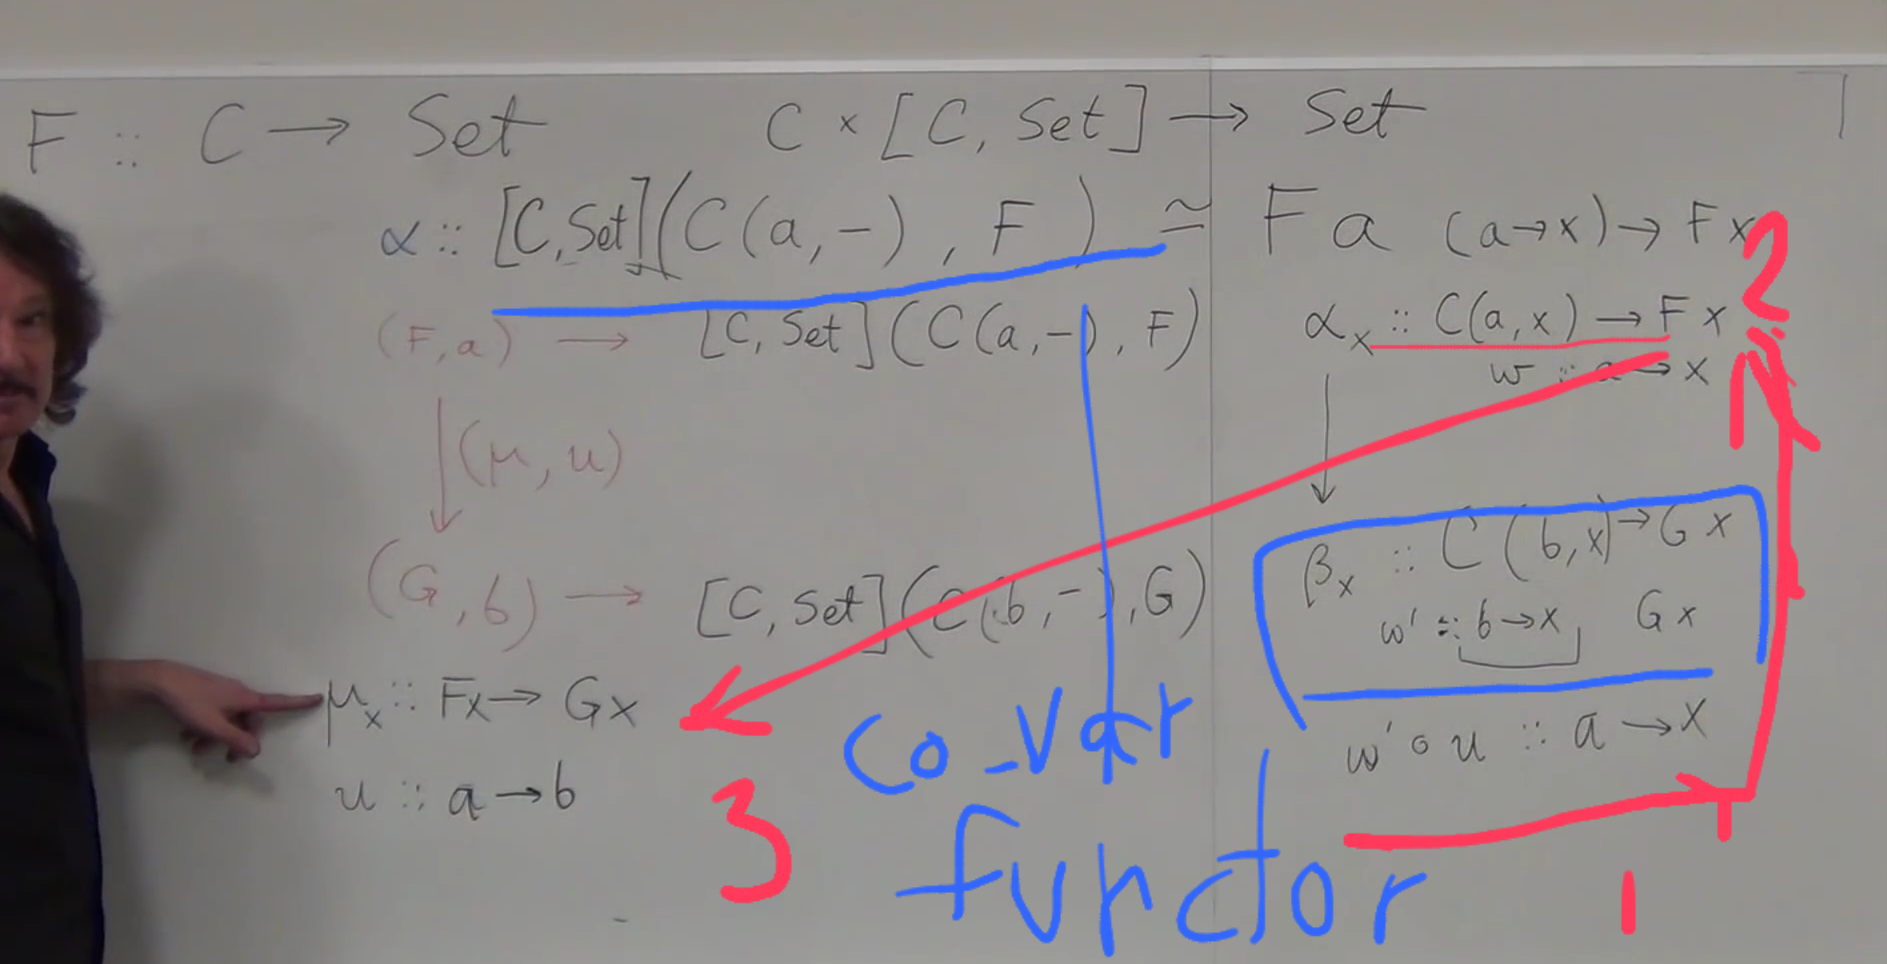 F :: C → Set
C × [C, Set] → Set
α :: [C, Set](C(a, −), F) ≃ F a
(a→x) → F x
(F, a) → [C, Set](C(a, −), F)
α_x :: C(a, x) → F x
w :: a → x
2
(μ, u)
(G, b) → [C, Set](C(b, −), G)
β_x :: C(b, x) → G x
w' :: b → x G x
μ_x :: Fx → Gx
w' ∘ u :: a → x
u :: a → b
co_var
functor
3
1